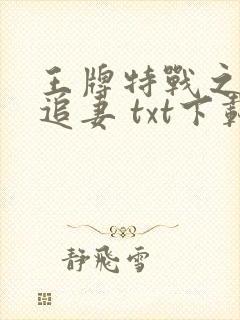 王牌特戰之
追妻 txt下載
靜飛雪